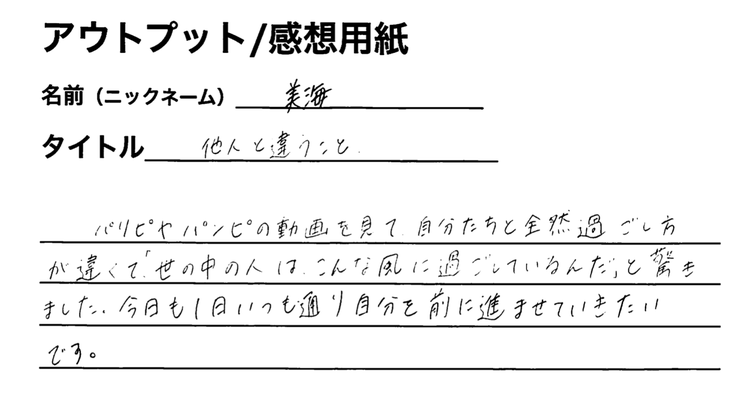 アウトプット/感想用紙
名前（ニックネーム） 美海
タイトル 他人と違うこと.
パリピやパンピの動画を見て、自分たちと全然過ごし方
が違くて、「世の中の人は、こんな風に過ごしているんだ」と驚き
ました、今日も1日いつも通り自分を前に進ませていきたい
です。